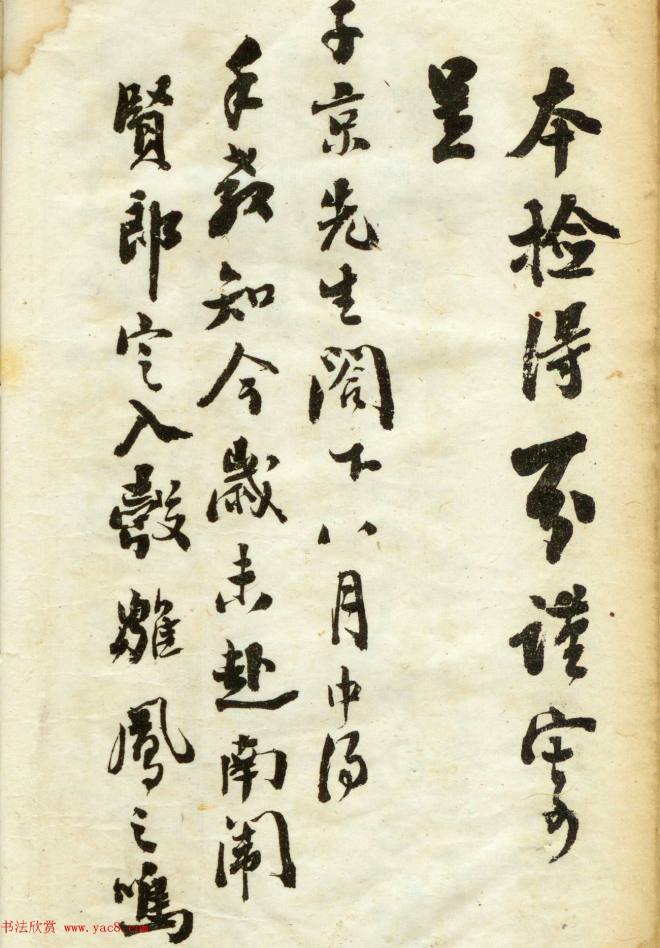 本检得再謹寄
呈
子京先生閣下八月中得
手教知今歲未赴南闈
賢郎定入彀雛鳳之鳴
书法欣赏 www.yac8.com